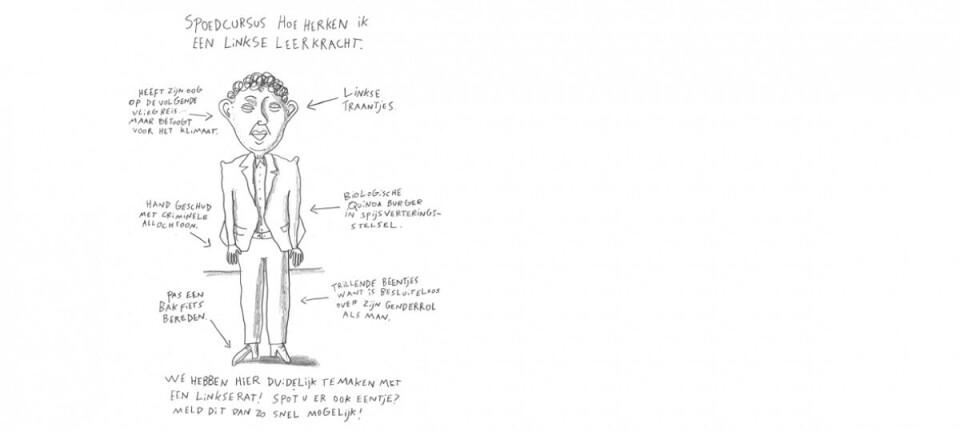 SPOEDCURSUS HOE HERKEN IK
EEN LINKSE LEERKRACHT.
HEEFT ZIJN OOG
OP DE VOLGENDE
VLIEGREIS...
MAAR BETOOGT
VOOR HET KLIMAAT.
LINKSE
TRAANTJES.
HAND GESCHUD
MET CRIMINELE
ALLOCHTOON.
BIOLOGISCHE
QUINOA BURGER
IN SPIJSVERTERINGS-
STELSEL.
PAS EEN
BAKFIETS
BEREDEN.
TRILLENDE BEENTJES
WANT IS BESLUITELOOS
OVER ZIJN GENDERROL
ALS MAN.
WE HEBBEN HIER DUIDELIJK TE MAKEN MET
EEN LINKSE RAT! SPOT U ER OOK EENTJE?
MELD DIT DAN ZO SNEL MOGELIJK!